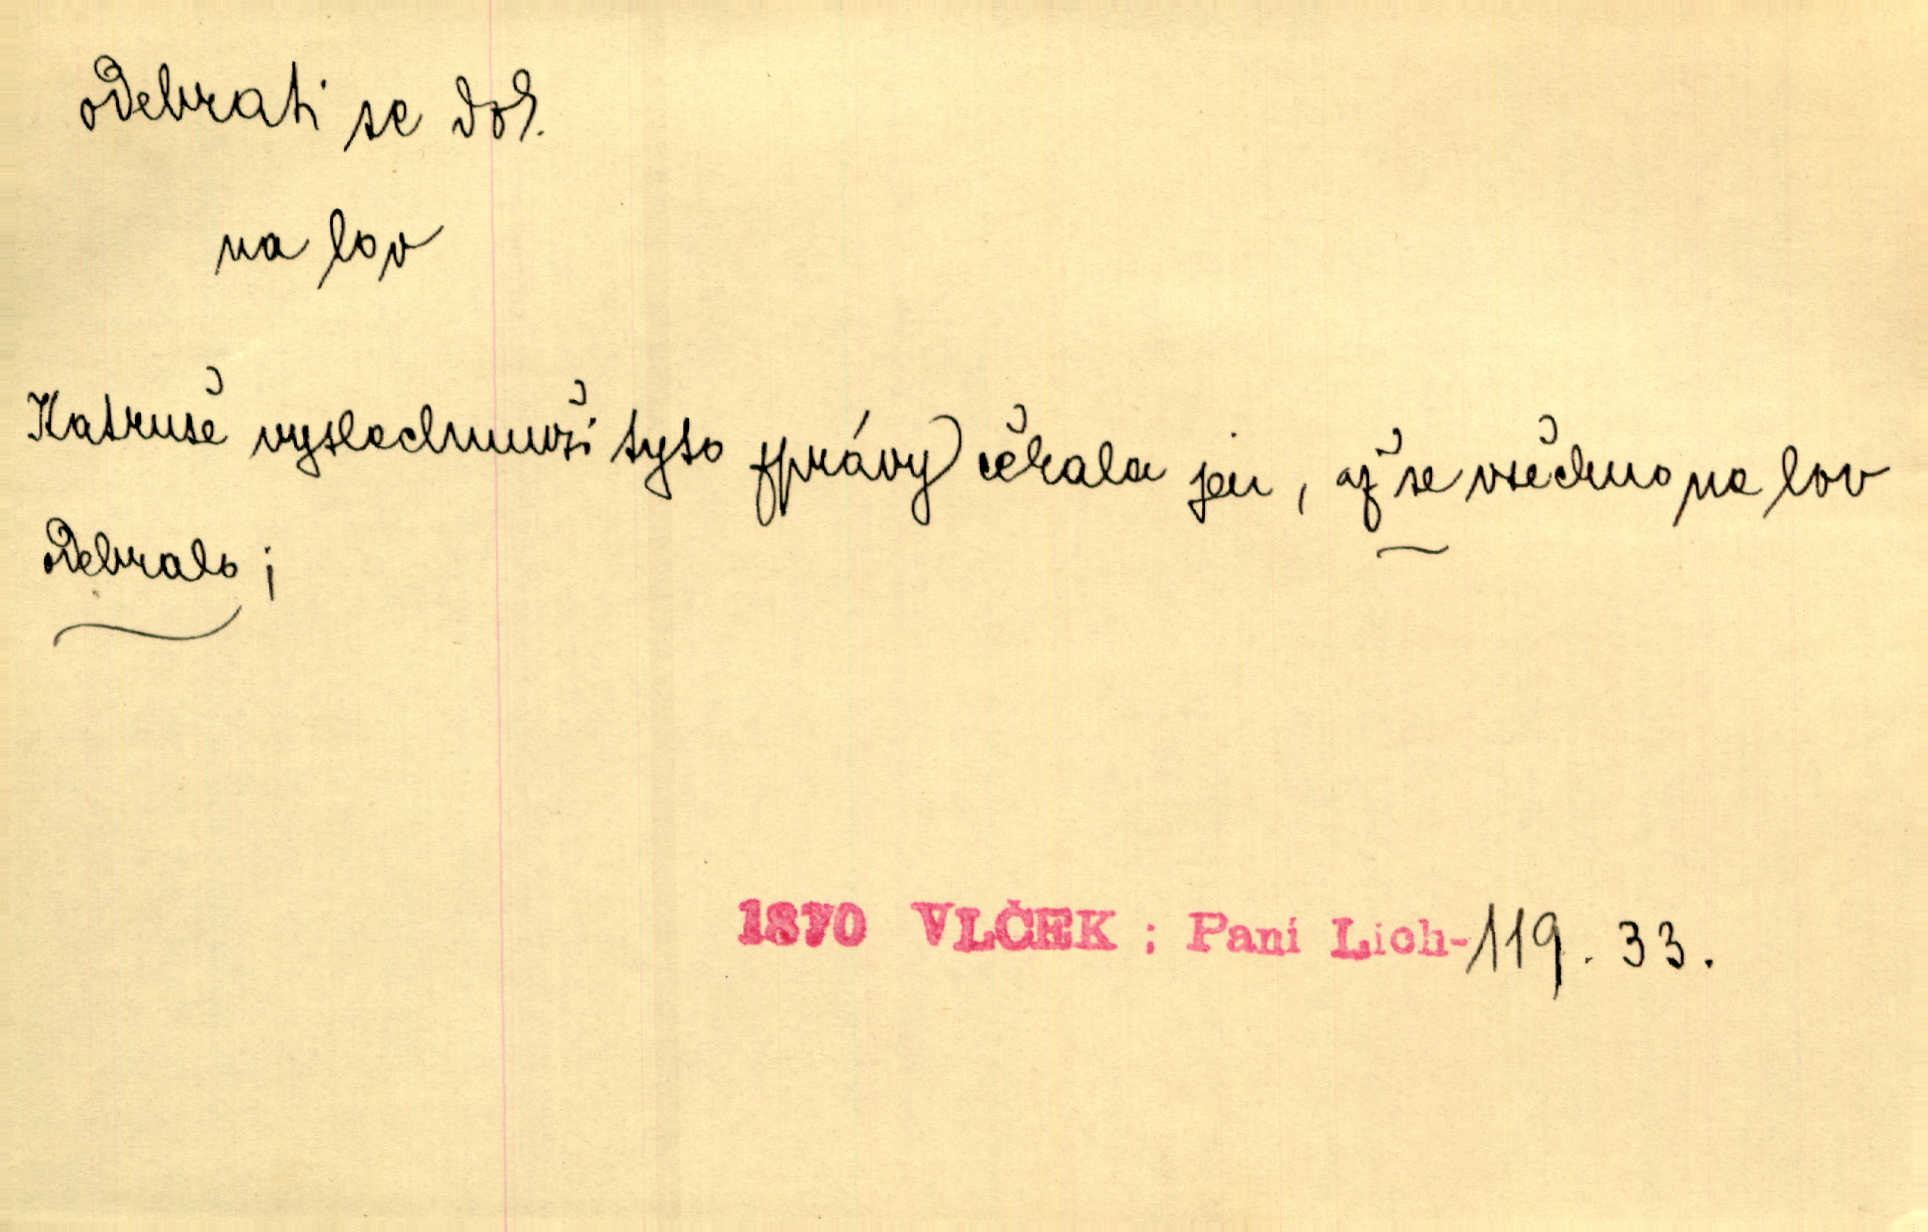 odebrati se dok.
na lov
Katruše vyslechnuvši tyto zprávy) čekala jen, až se všechno na lov
odebralo;
1870 VLČEK : Paní Lich-119. 33.